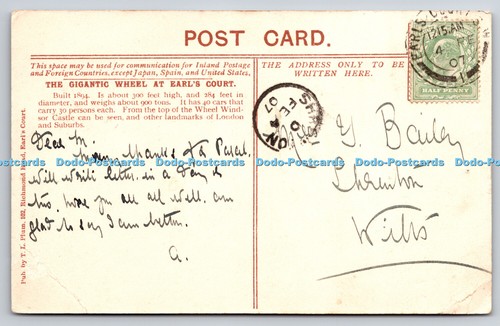 POST CARD.
This space may be used for communication for Inland Postage
and Foreign Countries, except Japan, Spain, and United States.
THE GIGANTIC WHEEL AT EARL'S COURT.
Built 1894. Is about 300 feet high, and 284 feet in
diameter, and weighs about 900 tons. It has 40 cars that
carry 30 persons each. From the top of the Wheel Wind-
sor Castle can be seen, and other landmarks of London
and Suburbs.
Dear M
many thanks for
Will write letter in a day or
two. hope you all all well. am
glad to say I am better.
A.
Pub. by T. L. Plum, Richmond Road, Earl's Court.
THE ADDRESS ONLY TO BE
WRITTEN HERE.
G. Bailey
Shrewton
Wilts
EARLS COURT
12.15 AM
4
07
HALF PENNY
FE 4
07
Dodo-Postcards Dodo-Postcards Dodo-Postcards Dodo-Postcards Dodo-Postcards Dodo-Postcards